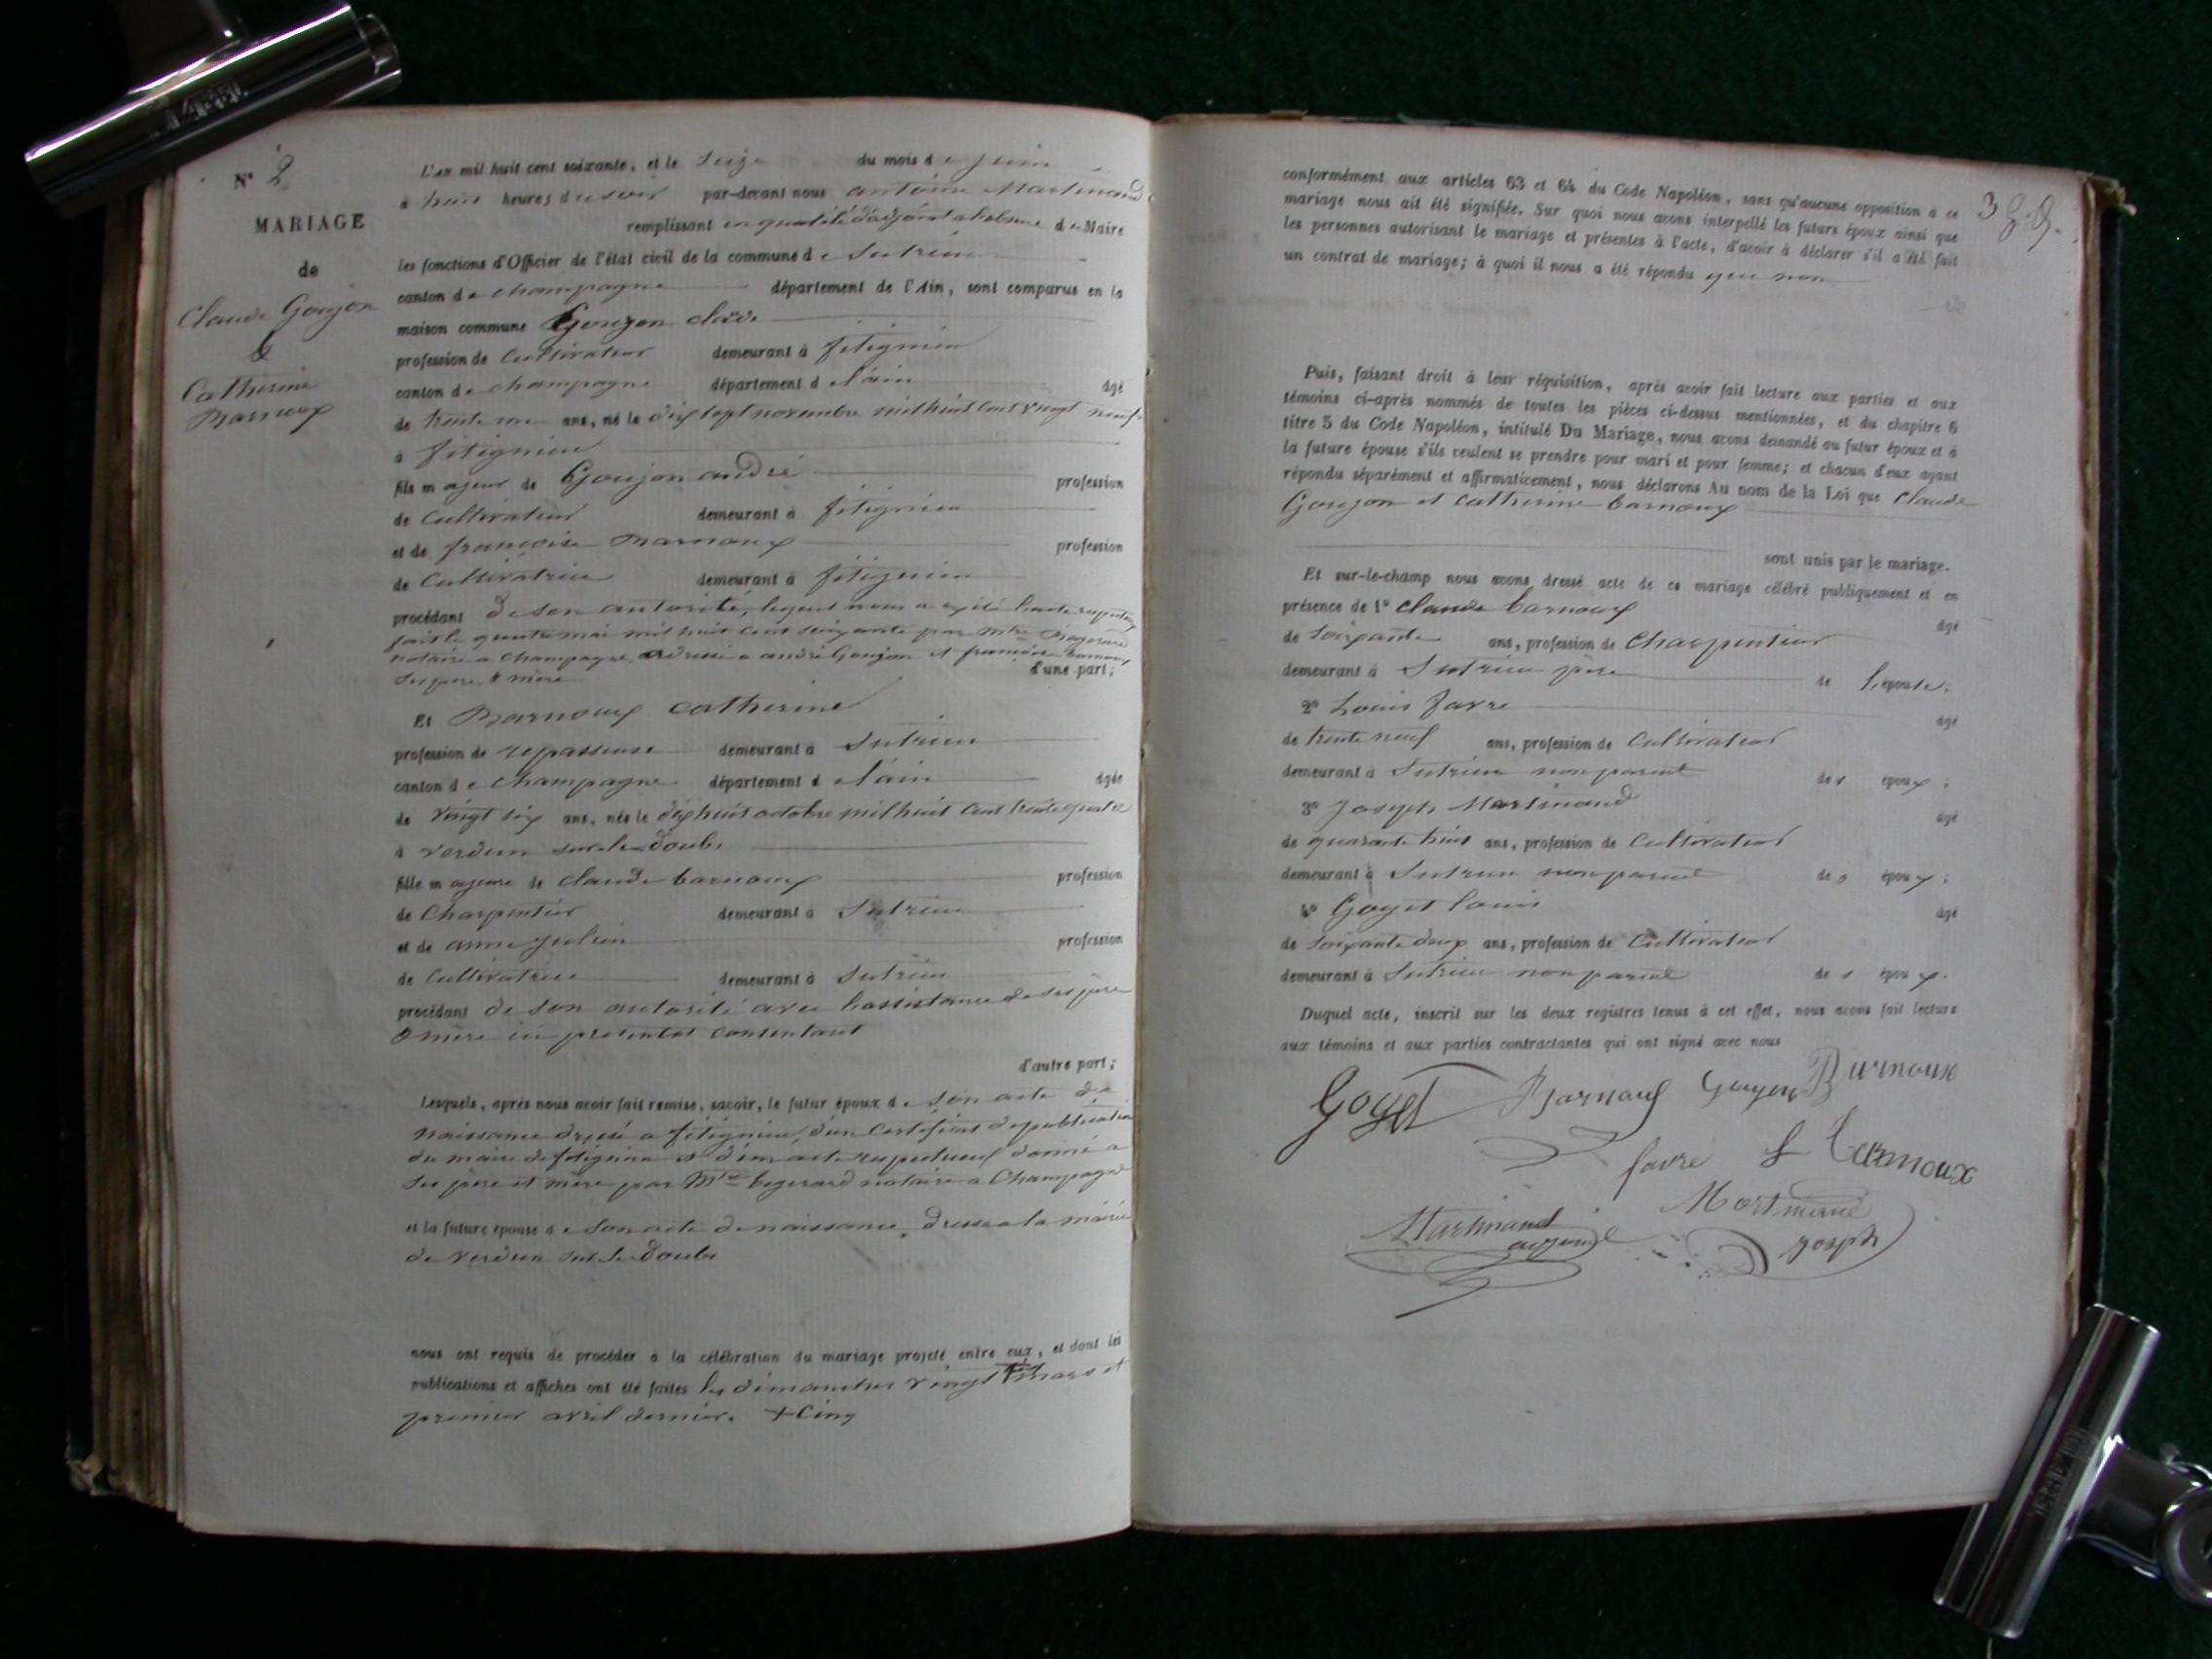 N° 2
MARIAGE
de
Claude Goujon
&
Catherine
Barnoux
L'an mil huit cent soixante, et le seize du mois de juin
à huit heures du soir par-devant nous antoine Martinand
remplissant en qualité d'adjoint a labsence de Maire
les fonctions d'Officier de l'état civil de la commune de Sutrieu
canton de champagne département de l'Ain, sont comparus en la
maison commune Goujon claude
profession de Cultivateur demeurant à fitignieu
canton de champagne département de l'ain âgé
de trente un ans, né le dix sept novembre mil huit cent vingt neuf
à fitignieu
fils majeur de Goujon andré profession
de Cultivateur demeurant à fitignieu
et de françoise Barnoux profession
de Cultivatrice demeurant à fitignieu
procédant de son autorité, lequel nous a lacte
fait le quatre mai mil huit cent soixante par Mtre
notaire a Champagne, adressé a andré Goujon et françoise Barnoux
ses pere & mère d'une part;
Et Barnoux catherine
profession de repasseuse demeurant à Sutrieu
canton de champagne département de l'ain âgée
de vingt six ans, née le dix huit octobre mil huit cent trente quatre
à verdun sur le doubs
fille majeure de claude barnoux profession
de Charpentier demeurant à Sutrieu
et de anne julien profession
de Cultivatrice demeurant à Sutrieu
procédant de son autorité avec lassistance de ses père
& mère ici présent et consentant
d'autre part;
Lesquels, après nous avoir fait remise, savoir, le futur époux de son acte de
naissance dressé a fitignieu, d'un certificat de publication
du maire de fitignieu et d'un acte respectueux donné a
ses père et mère par Mtre begerard notaire a Champagne
et la future épouse de son acte de naissance, dressé a la mairie
de Verdun sur le Doubs
nous ont requis de procéder à la célébration du mariage projeté entre eux, et dont les
publications et affiches ont été faites les dimanches vingt + mars et
premier avril dernier. + Cinq
3
conformément aux articles 63 et 64 du Code Napoléon, sans qu'aucune opposition à ce
mariage nous ait été signifiée. Sur quoi nous avons interpellé les futurs époux ainsi que
les personnes autorisant le mariage et présentes à l'acte, d'avoir à déclarer s'il a été fait
un contrat de mariage; à quoi il nous a été répondu que non
Puis, faisant droit à leur réquisition, après avoir fait lecture aux parties et aux
témoins ci-après nommés de toutes les pièces ci-dessus mentionnées, et du chapitre 6
titre 5 du Code Napoléon, intitulé Du Mariage, nous avons demandé au futur époux et à
la future épouse s'ils veulent se prendre pour mari et pour femme; et chacun d'eux ayant
répondu séparément et affirmativement, nous déclarons Au nom de la Loi que claude
Goujon et catherine barnoux
sont unis par le mariage.
Et sur-le-champ nous avons dressé acte de ce mariage célébré publiquement et en
présence de 1° claude barnoux âgé
de soixante ans, profession de Charpentier
demeurant à Sutrieu père de l'épouse;
2° Louis favre âgé
de trente neuf ans, profession de Cultivateur
demeurant à Sutrieu non parent des époux;
3° Joseph Martinand âgé
de quarante huit ans, profession de Cultivateur
demeurant à Sutrieu non parent des époux;
4° Goyet louis âgé
de soixante deux ans, profession de Cultivateur
demeurant à Sutrieu non parent des époux.
Duquel acte, inscrit sur les deux registres tenus à cet effet, nous avons fait lecture
aux témoins et aux parties contractantes qui ont signé avec nous
Goyet Barnoux Goujon Burnoux
favre f Barnoux
Martinand
adjoint
Martinand
Joseph